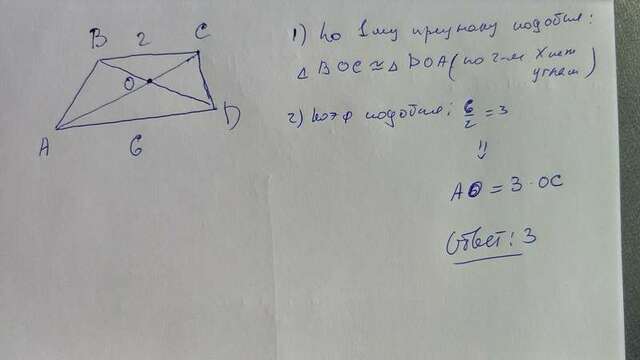 B 2 C
O
A
D
6
1) По 1му признаку подобия:
△ BOC ≅ △ DOA (по 2-м Хист углам)
2) Коэф подобия: 6/2 = 3
⇓
AO = 3 · OC
Ответ: 3